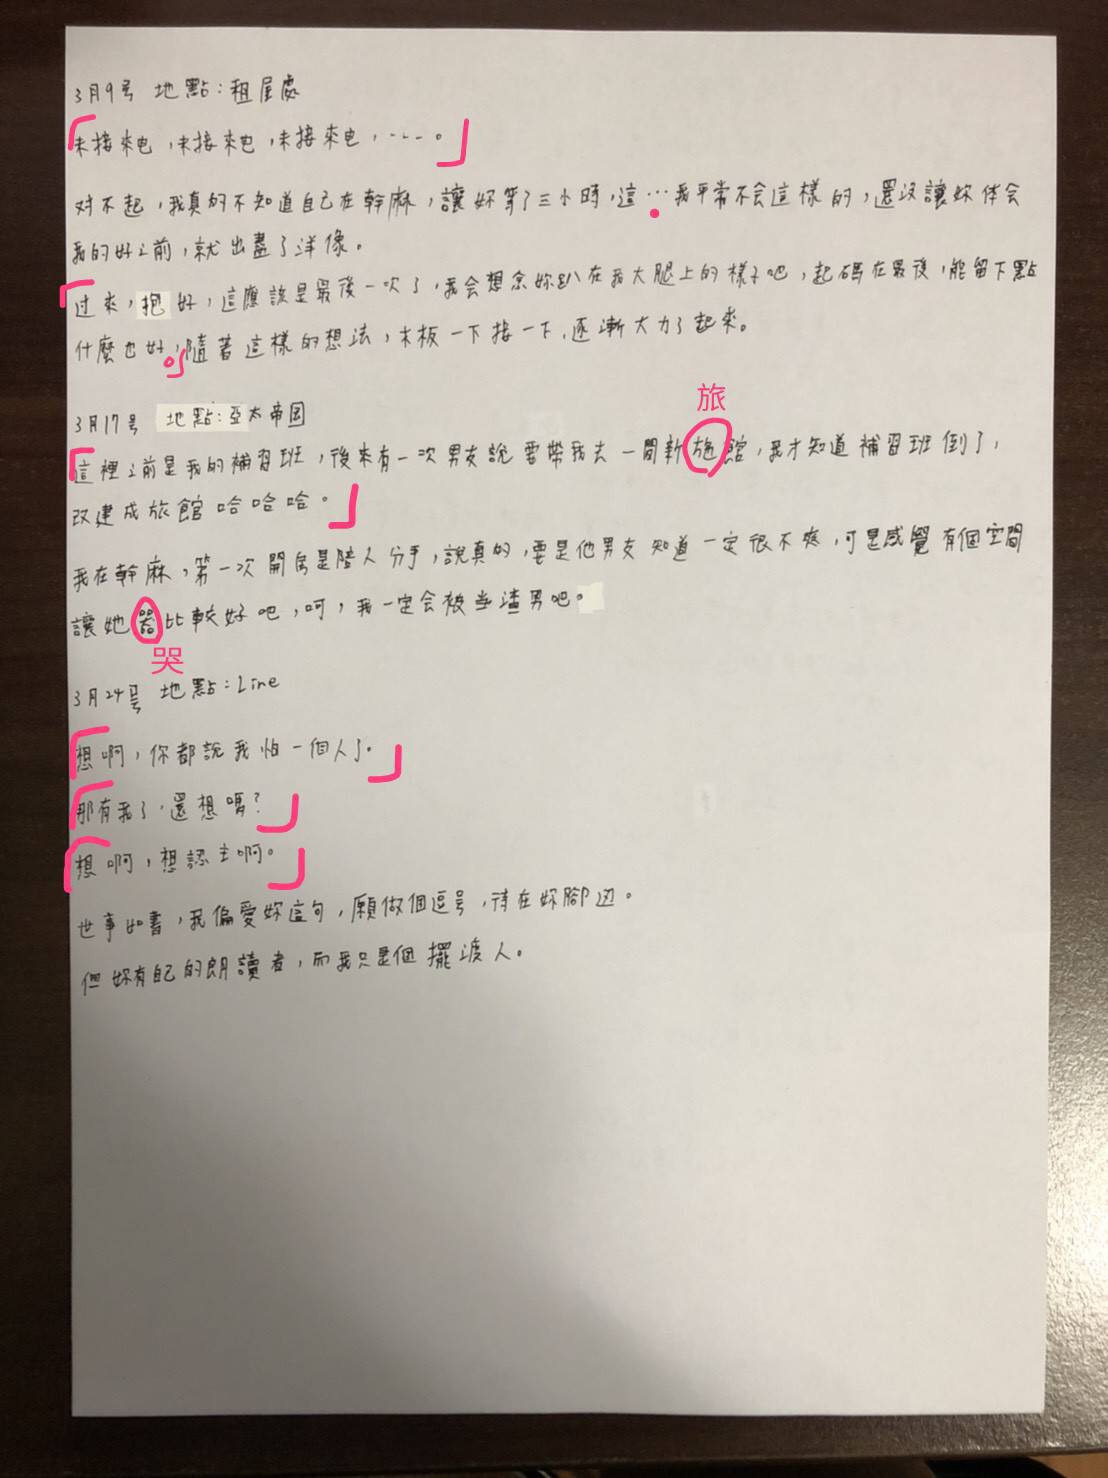 3月9号 地點:租屋處
「未接來电,未接來电,未接來电,……。」
对不起,我真的不知道自己在幹麻,讓妳等了三小時,這…我平常不会這樣的,還沒讓妳体会
我的好之前,就出盡了洋像。
「过來,抱好,這應該是最後一次了,我会想念妳趴在我大腿上的樣子吧,起碼在最後,能留下點
什麼也好。」隨著這樣的想法,木板一下接一下,逐漸大力了起來。
旅
3月17号 地點:亞太帝国
「這裡之前是我的補習班,後來有一次男友說要帶我去一間新施館,我才知道補習班倒了,
改建成旅館哈哈哈。」
我在幹麻,第一次開房是陪人分手,說真的,要是他男友知道一定很不爽,可是感覺有個空間
讓她器比較好吧,呵,我一定会被当渣男吧。
哭
3月24号 地點:Line
「想啊,你都說我怕一個人了。」
「那有我了,還想嗎?」
「想啊,想認主啊。」
世事如書,我偏愛妳這句,願做個逗号,待在妳腳边。
但妳有自己的朗讀者,而我只是個擺渡人。